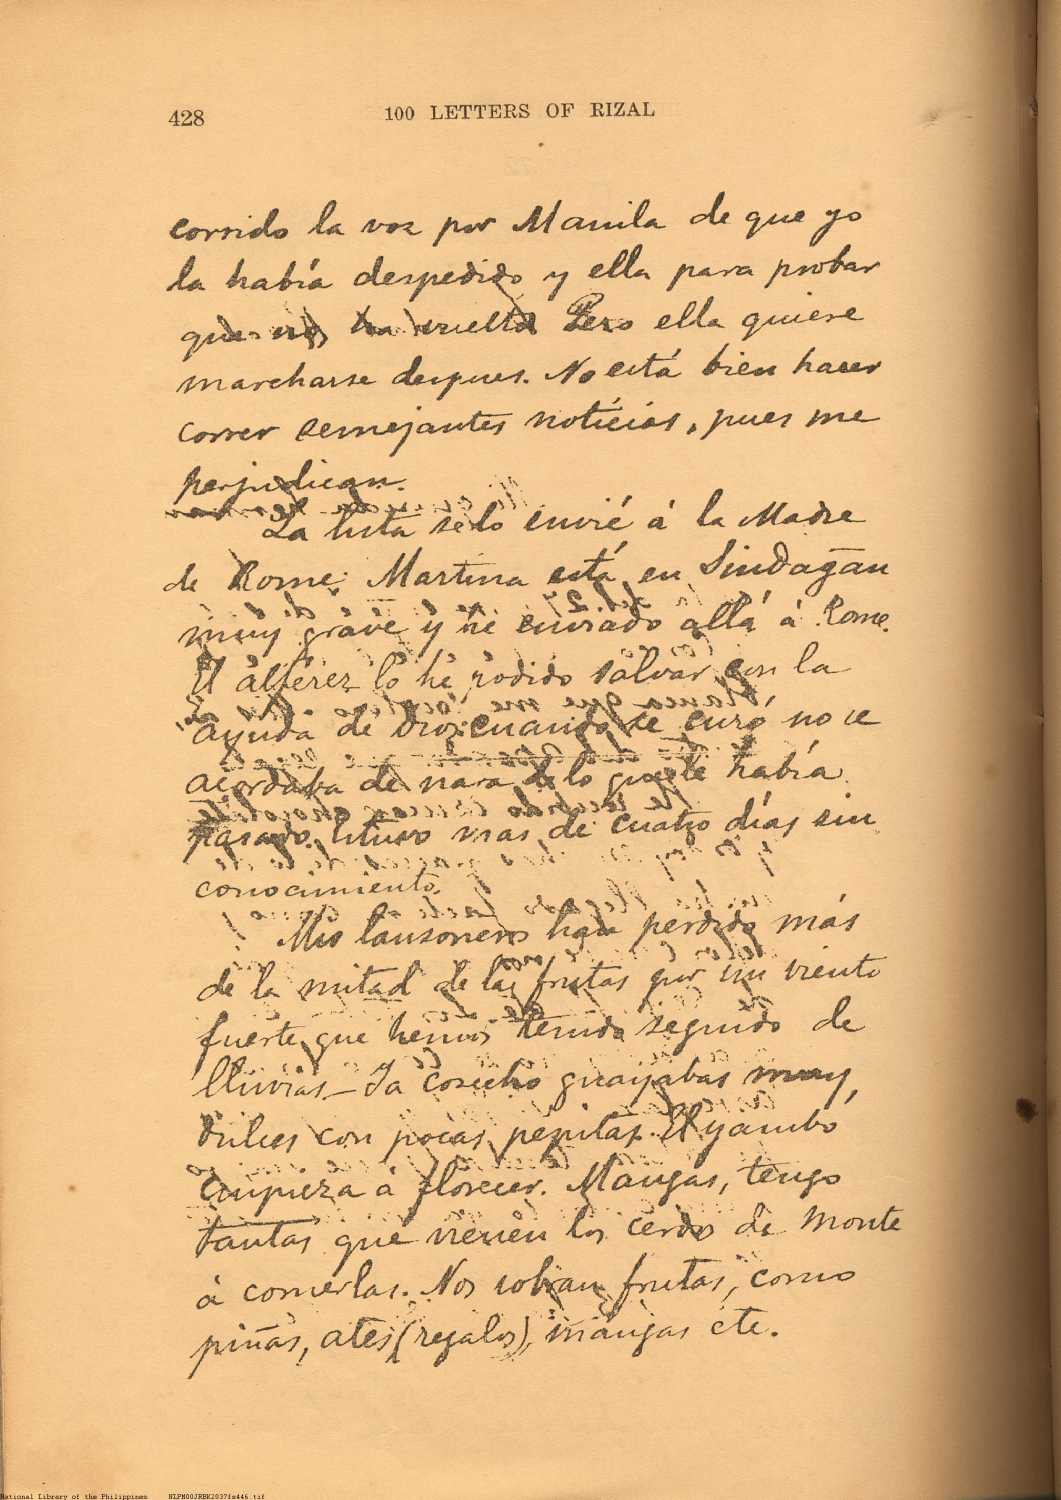 428
100 LETTERS OF RIZAL
corrido la voz por Manila de que yo
la había despedido y ella para probar
que no, ha vuelto Pero ella quiere
marcharse despues. No está bien hacer
correr semejantes noticias, pues me
perjudican.
La lista se lo envié á la Madre
de Rome; Martina está en Sindagan
muy grave y he enviado allá á Rome.
El alférez lo he podido salvar con la
ayuda de dios: cuando se curó, no se
acordaba de nara de lo que le había
pasado. Estuvo mas de cuatro días sin
conocimiento.
Mis lansoneros han perdido más
de la mitad de las frutas por un viento
fuerte que hemos tenido seguido de
lluvias_ Ya cosecho guayabas muy
dulces con pocas pepitas. El yambó
empieza á florecer. Mangas, tengo
tantas que vienen los cerdos de monte
á comerlas. Nos sobran frutas, como
piñas, ates (regalos), mangas etc.
National Library of the Philippines